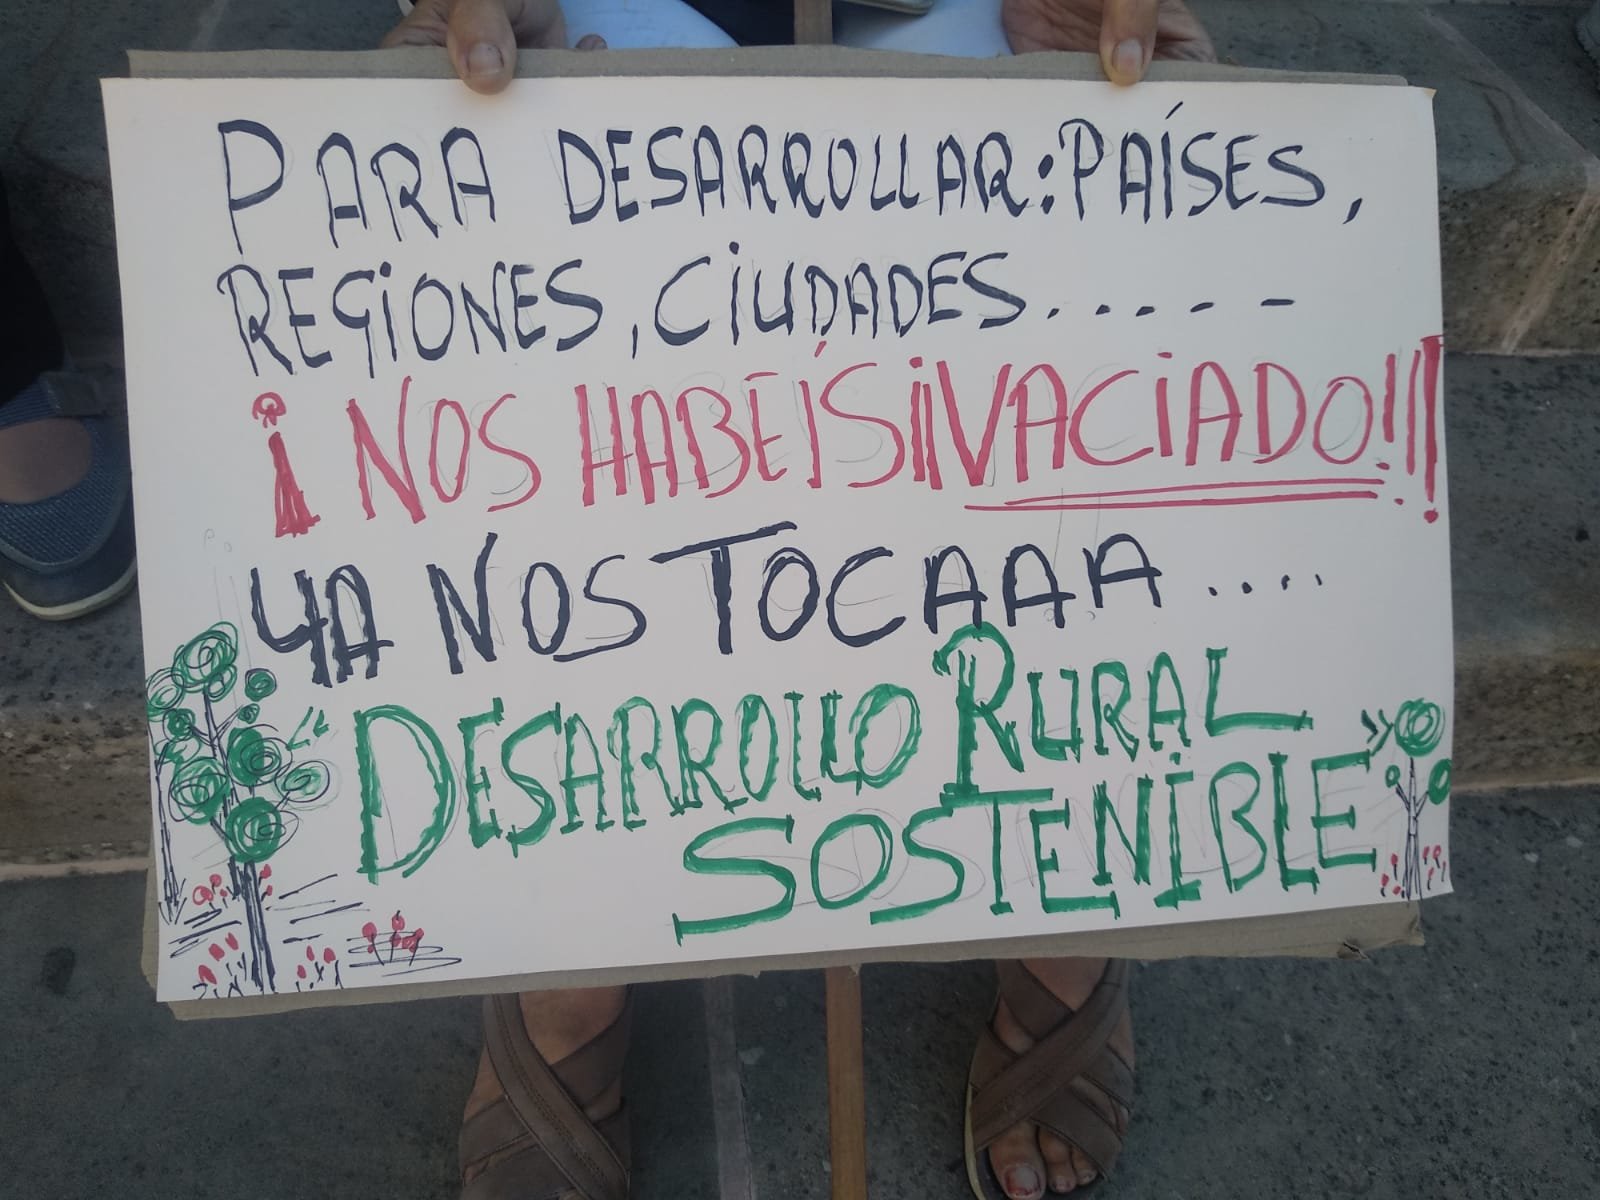 PARA DESARROLLAR: PAÍSES,
REGIONES, CIUDADES.....-
¡NOS HABEÍS ¡¡VACIADO!!!
YA NOS TOCAAA....
"DESARROLLO RURAL
SOSTENIBLE"